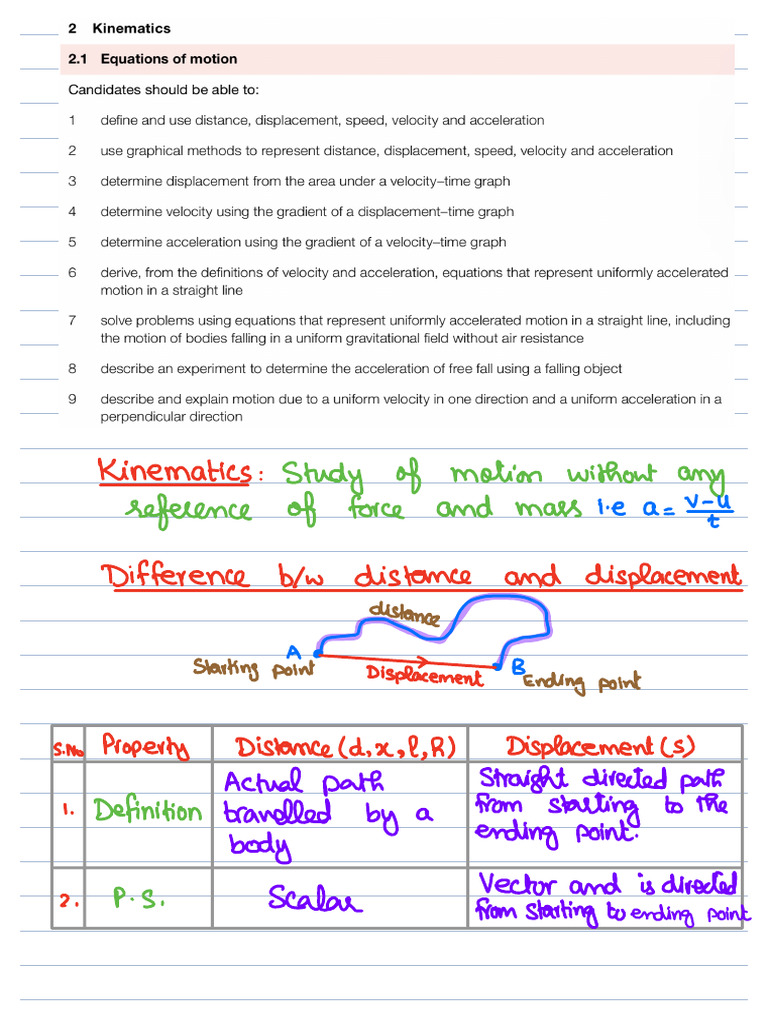 2 Kinematics
2.1 Equations of motion
Candidates should be able to:
1 define and use distance, displacement, speed, velocity and acceleration
2 use graphical methods to represent distance, displacement, speed, velocity and acceleration
3 determine displacement from the area under a velocity–time graph
4 determine velocity using the gradient of a displacement–time graph
5 determine acceleration using the gradient of a velocity–time graph
6 derive, from the definitions of velocity and acceleration, equations that represent uniformly accelerated
motion in a straight line
7 solve problems using equations that represent uniformly accelerated motion in a straight line, including
the motion of bodies falling in a uniform gravitational field without air resistance
8 describe an experiment to determine the acceleration of free fall using a falling object
9 describe and explain motion due to a uniform velocity in one direction and a uniform acceleration in a
perpendicular direction
Kinematics: Study of motion without any
reference of force and mass i.e a = v-u/t
Difference b/w distance and displacement
distance
A
Starting point
Displacement
B
Ending point
S.No Property Distance (d, x, l, h) Displacement (s)
1. Definition
Actual path
travelled by a
body
Straight directed path
from starting to the
ending point.
2. P.S. Scalar
Vector and is directed
from starting to ending point